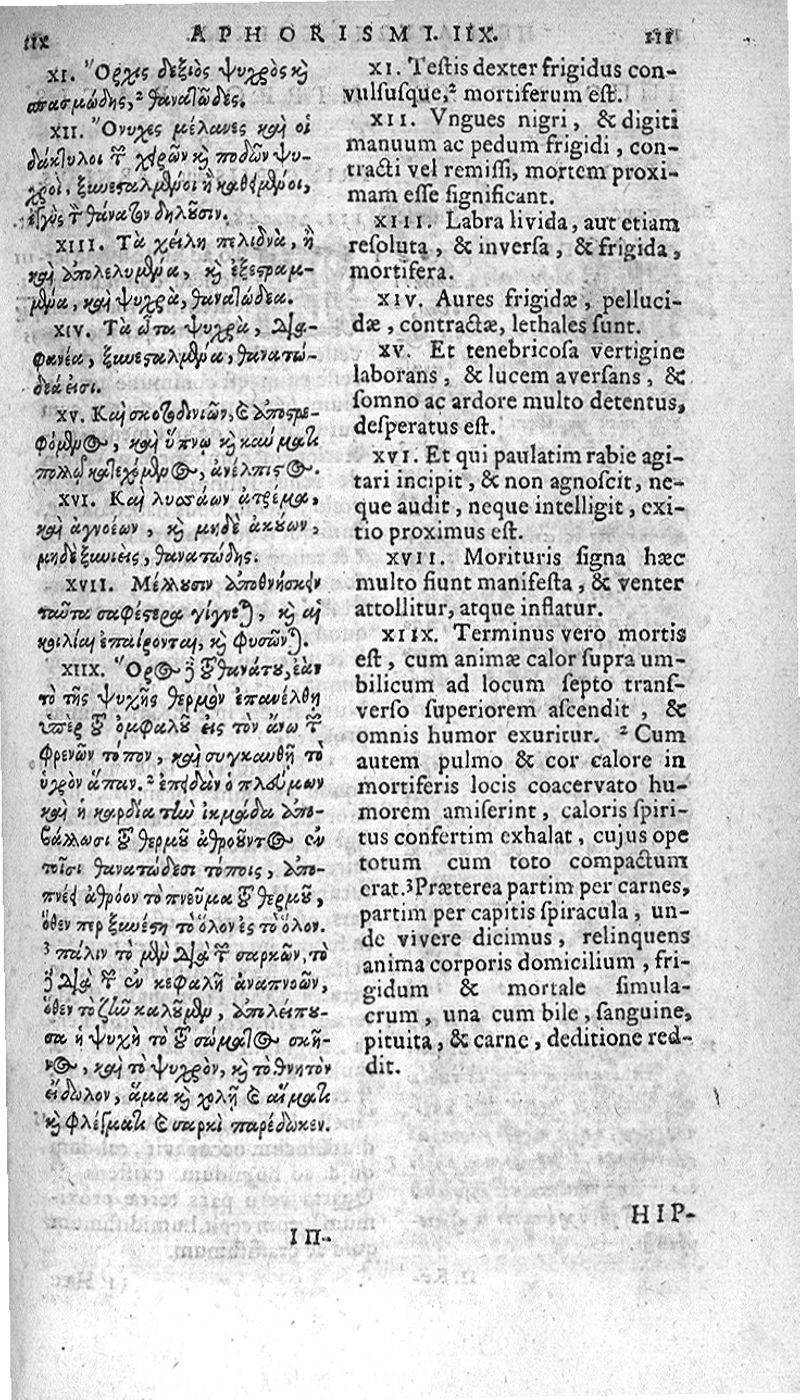 APHORISMI. IIX.
XI. Ὄρχις δεξιὸς ψυχρὸς καὶ
σπασμώδης,² θανατῶδες.
XII. Ὄνυχες μέλανες καὶ οἱ
δάκτυλοι τῶν χειρῶν καὶ ποδῶν ψυ-
χροὶ, ξυνεσταλμένοι ἢ καθειμένοι,
ἐγγὺς τὸν θάνατον δηλοῦσιν.
XIII. Τὰ χείλη πελιδνὰ, ἢ
καὶ ἀπολελυμένα, καὶ ἐξεστραμ-
μένα, καὶ ψυχρὰ, θανατώδεα.
XIV. Τὰ ὦτα ψυχρὰ, δια-
φανέα, ξυνεσταλμένα, θανατώ-
δεά εἰσι.
XV. Καὶ σκοτοδινιῶν, καὶ ἀποστρε-
φόμενος, καὶ ὕπνῳ καὶ καύματι
πολλῷ κατεχόμενος, ἀνέλπιστος.
XVI. Καὶ λυσσάων ἀτρέμα,
καὶ ἀγνοέων, καὶ μηδὲ ἀκούων,
μηδὲ ξυνιεὶς, θανατώδης.
XVII. Μέλλουσιν ἀποθνήσκειν
ταῦτα σαφέστερα γίγνεται, καὶ αἱ
κοιλίαι ἐπαίρονται, καὶ φυσῶνται.
XIIX. Ὅρος δὲ τοῦ θανάτου, ἐὰν
τὸ τῆς ψυχῆς θερμὸν ἐπανέλθῃ
ὑπὲρ τοῦ ὀμφαλοῦ εἰς τὸν ἄνω τῶν
φρενῶν τόπον, καὶ συγκαυθῇ τὸ
ὑγρὸν ἅπαν. ² ἐπειδὰν ὁ πλεύμων
καὶ ἡ καρδία τὴν ἰκμάδα ἀπο-
βάλλωσι τοῦ θερμοῦ ἀθροοῦντος ἐν
τοῖσι θανατώδεσι τόποις, ἀπο-
πνέει ἀθρόον τὸ πνεῦμα τοῦ θερμοῦ,
ὅθεν περ ξυνέστη τὸ ὅλον ἐς τὸ ὅλον.
³ πάλιν τὸ μὲν διὰ τῶν σαρκῶν, τὸ
δὲ διὰ τῶν ἐν κεφαλῇ ἀναπνοῶν,
ὅθεν τὸ ζῆν καλοῦμεν, ἀπολείπου-
σα ἡ ψυχὴ τὸ τοῦ σώματος σκῆ-
νος, καὶ τὸ ψυχρὸν, καὶ τὸ θνητὸν
εἴδωλον, ἅμα καὶ χολῇ καὶ αἵματι
καὶ φλέγματι καὶ σαρκὶ παρέδωκεν.
ΙΠ-
XI. Testis dexter frigidus con-
vulsusque,² mortiferum est.
XII. Vngues nigri, & digiti
manuum ac pedum frigidi, con-
tracti vel remissi, mortem proxi-
mam esse significant.
XIII. Labra livida, aut etiam
resoluta, & inversa, & frigida,
mortifera.
XIV. Aures frigidæ, pelluci-
dæ, contractæ, lethales sunt.
XV. Et tenebricosa vertigine
laborans, & lucem aversans, &
somno ac ardore multo detentus,
desperatus est.
XVI. Et qui paulatim rabie agi-
tari incipit, & non agnoscit, ne-
que audit, neque intelligit, exi-
tio proximus est.
XVII. Morituris signa hæc
multo fiunt manifesta, & venter
attollitur, atque inflatur.
XIIX. Terminus vero mortis
est, cum animæ calor supra um-
bilicum ad locum septo transf-
verso superiorem ascendit, &
omnis humor exuritur. ² Cum
autem pulmo & cor calore in
mortiferis locis coacervato hu-
morem amiserint, caloris spiri-
tus confertim exhalat, cujus ope
totum cum toto compactum
erat.³Præterea partim per carnes,
partim per capitis spiracula, un-
de vivere dicimus, relinquens
anima corporis domicilium, fri-
gidum & mortale simula-
crum, una cum bile, sanguine,
pituita, & carne, deditione red-
dit.
HIP-